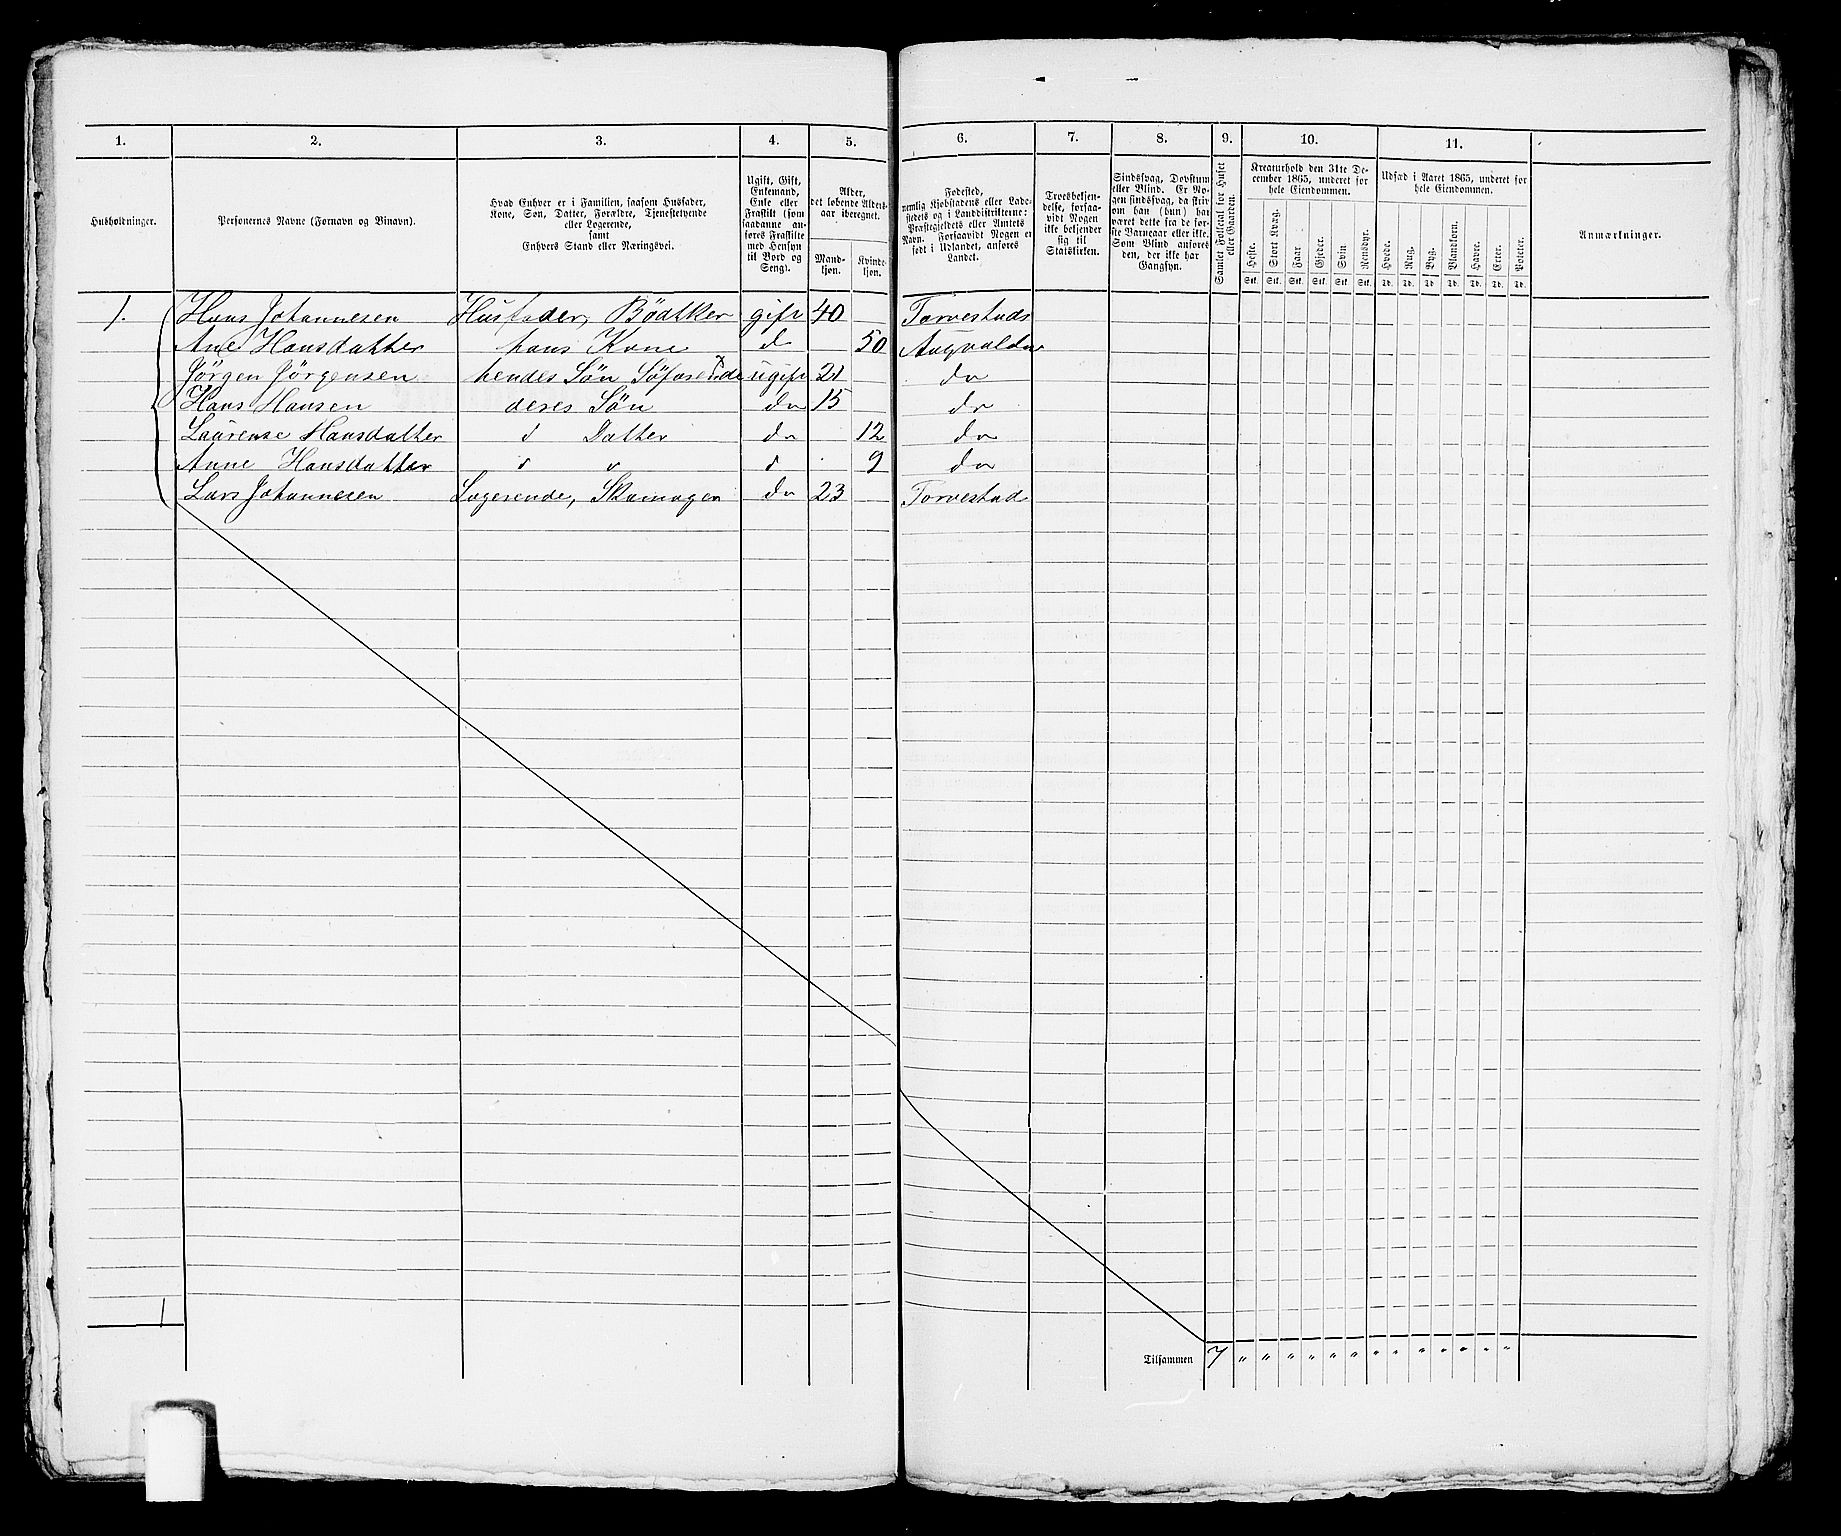 1. 2. 3. 4. 5. 6. 7. 8. 9. 10. 11.
Husholdninger.
Personernes Navne (Fornavn og Binavn).
Hvad Enhver er i Familien, saasom Husfader,
Kone, Søn, Datter, Forældre, Tjenestetyende
eller Logerende,
samt
Enhvers Stand eller Næringsvei.
Ugift, Gift,
Enkemand,
Enke eller
Fraskilt (som
saadanne an-
føres Fraskilte
med Hensyn
til Bord og
Seng).
Alder,
det løbende Alders-
aar iberegnet.
Mand-
kjøn.
Kvinde-
kjøn.
Fødested,
nemlig Kjøbstadens eller Lade-
stedets og i Landdistrikterne:
Præstegjeldets eller Amtets
Navn. Forsaavidt Nogen er
født i Udlandet, anføres
Landet.
Troesbekjen-
delse, forsaa-
vidt Nogen
ikke bekjender
sig til
Statskirken.
Sindssvag, Døvstum
eller Blind. Er No-
gen sindssvag, da skriv
om han (hun) har
været dette fra de før-
ste Barneaar eller ikke.
Som Blind anføres
den, der ikke har
Gangsyn.
Samlet Folketal for Huset
eller Gaarden.
Kreaturhold den 31te De-
cember 1865, anført for
hele Eiendommen.
Heste. Stort Kvæg. Faar. Gjeder. Svin. Rensdyr.
Stk. Stk. Stk. Stk. Stk. Stk.
Udsæd i Aaret 1865, anført for
hele Eiendommen.
Hvede. Rug. Byg. Blandkorn. Havre. Erter. Poteter.
Td. Td. Td. Td. Td. Td. Td.
Anmærkninger.
1. Hans Johannesen Husfader, Bödtker gift 40 Torvestads
Ane Hansdatter hans Kone do 50 Augvaldsn
Jörgen Jörgensen hendes Sön Söfarende ugift 21 do
Hans Hansen deres Sön do 15 do
Laurense Hansdatter d Datter do 12 do
Anne Hansdatter d d d 9 do
Lars Johannesen Logerende, Skomager do 23 Torvestad
1
Tilsammen 7 " " " " " " " " " " " "